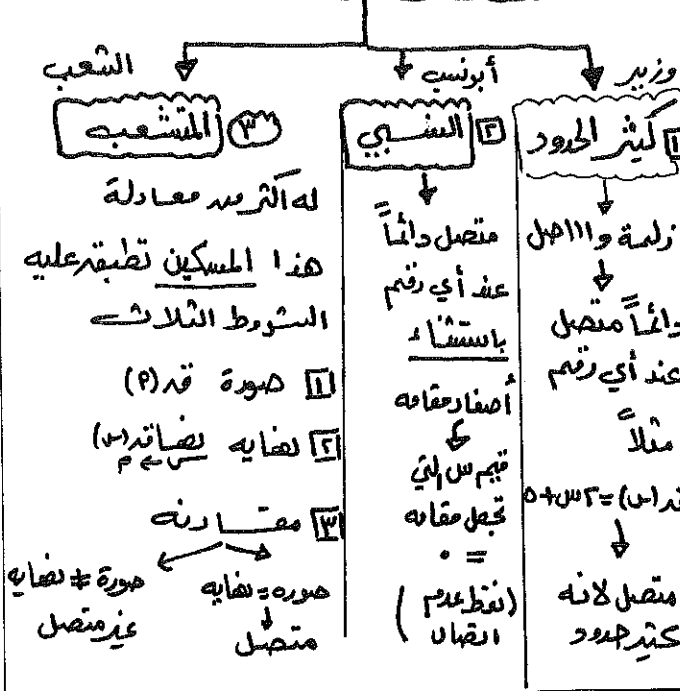 وزير
١ كثير الحدود
زلمة وااصل
دائماً متصل
عند أي رقم
مثلاً
قه(س)=٢س+٥
متصل لانه
كثير حدود
أبونسب
٢ النسبي
متصل دائماً
عند أي رقم
باستثناء
أصفار مقامه
قيم س التي
تجعل مقامه
= ٠
(نقط عدم
اتصال)
الشعب
٣ المتشعب
له اكثر من معادلة
هذا المسكين تطبق عليه
الشروط الثلاث
١ صورة قه(م)
٢ نهايه نهـا قه(س)
س←م
٣ مقـارنه
صوره = نهايه
متصل
صورة ≠ نهايه
غير متصل